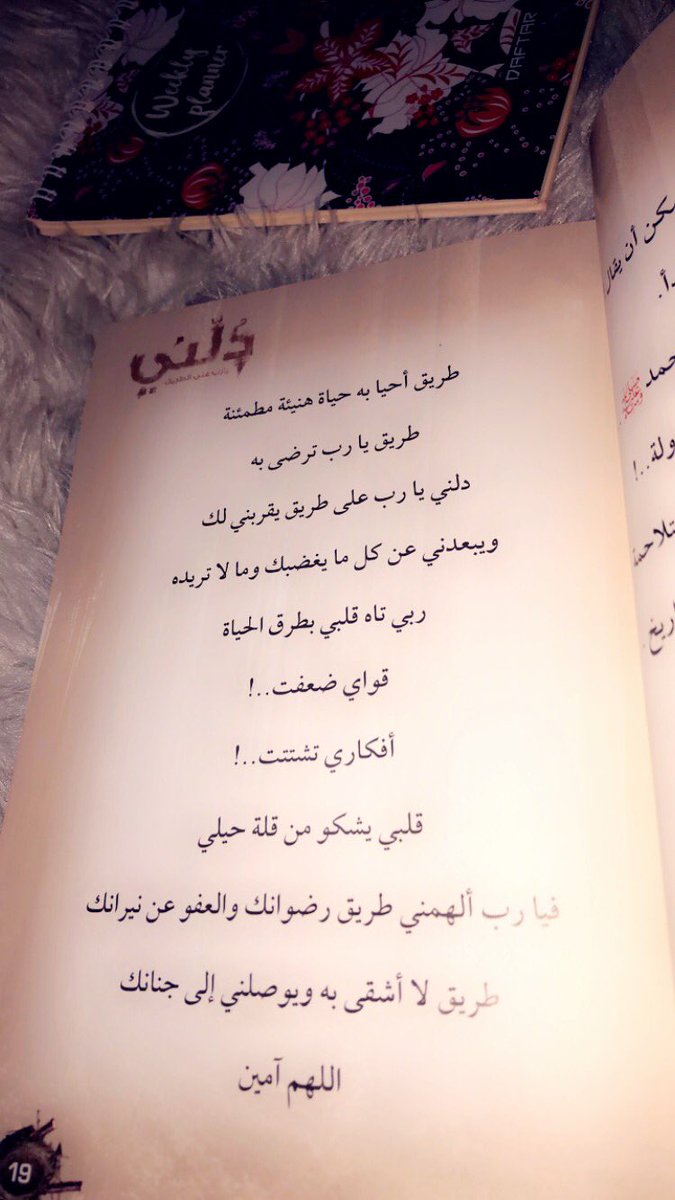 Weekly
planner
DAFTAR
دُلَّني
يارب على الطريق
طريق أحيا به حياة هنيئة مطمئنة
طريق يا رب ترضى به
دلني يا رب على طريق يقربني لك
ويبعدني عن كل ما يغضبك وما لا تريده
ربي تاه قلبي بطرق الحياة
قواي ضعفت..!
أفكاري تشتتت..!
قلبي يشكو من قلة حيلي
فيا رب ألهمني طريق رضوانك والعفو عن نيرانك
طريق لا أشقى به ويوصلني إلى جنانك
اللهم آمين
19
أن يقال